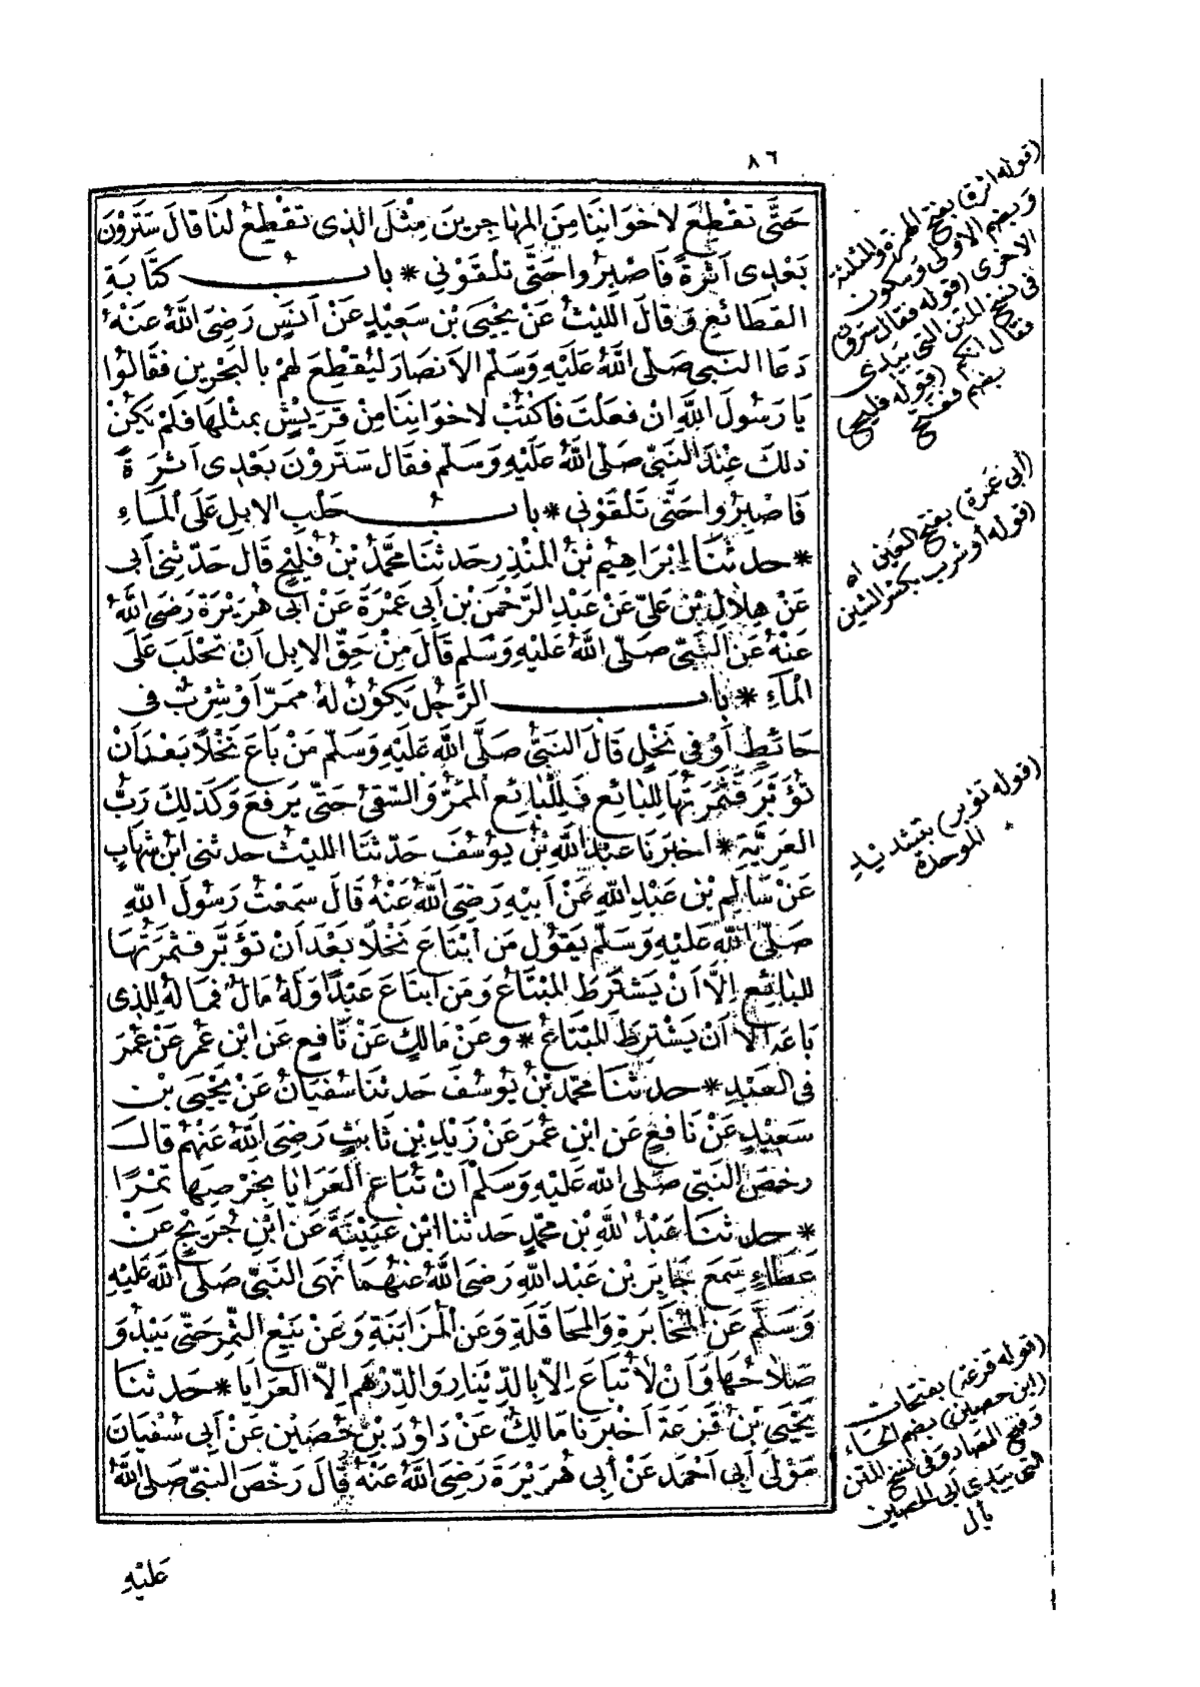 ٨٦
حَتَّى تقْطِعَ لاخوَانِنَا مِنَ المهَاجِرينَ مِثْلَ الذِى تقْطِعُ لنَا قالَ سَتَرَوْنَ
بَعْدِى أثَرَةً فَاصْبِرُوا حَتَّى تلْقَوْنِي * باب كتَابَةِ
القَطَائعِ وَقالَ اللَيْثُ عَنْ يَحْيَى بْنِ سَعِيْدٍ عَنْ أنَسٍ رَضِىَ اللَّهُ عَنْهُ
دَعَا النبى صَلَّى اللَّهُ عَلَيْهِ وَسَلَّم الأنصَارَ ليُقْطِعَ لهمْ بالبَحْرينِ فقَالُوا
يَا رَسُولَ اللهِ إنْ فعَلْتَ فَاكْتُبْ لاخوَانِنَا مِنْ قرَيْشٍ بمثْلهَا فلَمْ يَكُنْ
ذلكَ عِنْدَ النَبىِّ صَلَّى اللَّهُ عَلَيْهِ وَسَلَّم فقَال سَتَرَوْنَ بَعْدِى أثَرَةً
فَاصْبِرُوا حَتَّى تَلْقَوْنِي * باب حَلَبِ الابِلِ عَلَى المَاءِ
* حدثنَا إبْرَاهِيْمُ بْنُ المنْذِرِ حَدثنَا محَمَّدُ بْنُ فُلَيْحٍ قَال حَدّثنِى أبى
عَنْ هِلَالِ بْنِ عَلىّ عَنْ عَبْدِ الرَّحْمَنِ بْنِ أبى عَمْرَةَ عَنْ أبى هُرَيْرَةَ رَضِىَ اللَّهُ
عَنْهُ عَنِ النَّبىِّ صَلَّى اللَّهُ عَلَيْهِ وَسَلَّم قَالَ مِنْ حَقّ الابِلِ أنْ تحْلَبَ عَلَى
المَاءِ * باب الرَّجُلِ يَكُوْنُ لهُ ممَرّ أوْ شِرْبٌ فى
حَائطٍ أوْ فى نَخْلٍ قَالَ النبىُّ صَلَّى اللَّهُ عَلَيْهِ وَسَلَّم مَنْ بَاعَ نَخْلًا بَعْدَ أنْ
تُؤَبَّرَ فَثَمَرَتُهَا لِلبَائعِ فَلِلْبَائعِ المَمَرُّ وَالسّقىُ حَتَّى يَرفعَ وَكذلِكَ رَبُّ
العَرِيَّةِ * أخبَرنَا عبْدُ اللَّهِ بْنُ يُوسُفَ حَدّثنَا الليْثُ حدثنى ابْنُ شِهَابٍ
عَنْ سَالِمِ بْنِ عَبْدِ اللّهِ عَنْ أبيْهِ رَضِىَ اللَّهُ عَنْهُ قَالَ سَمعْتُ رَسُولَ اللَّهِ
صَلَّى اللَّهُ عَلَيْهِ وَسَلَّم يَقوْلُ مَنِ ابْتَاعَ نَخْلًا بَعْدَ أنْ تؤَبَّرَ فثَمَرَتُهَا
للبَائِعِ إلَّا أنْ يَشْتَرِطَ المُبْتَاعُ وَمَنِ ابتَاعَ عَبْدًا وَلَهُ مَالٌ فمَالهُ لِلذِى
بَاعَهُ الَّا أنْ يَشْتَرِطَ المُبْتَاعُ * وَعَنْ مَالكٍ عَنْ نَافِعٍ عَنِ ابْنِ عُمَرَ عَنْ عُمَرَ
فى العَبْدِ * حدثنَا محَمّدُ بْنُ يُوْسُفَ حَدثنَا سُفيَانُ عَنْ يَحْيَى بْنِ
سَعِيْدٍ عَنْ نَافعٍ عَنِ ابْنِ عُمَرَ عَنْ زَيْدِ بْنِ ثَابِتٍ رَضِىَ اللَّهُ عَنْهُمْ قالَ
رخصَ النَبىّ صَلَّى اللَّهُ عَلَيْهِ وَسَلَّم أنْ تُبَاعَ العَرَايَا بخَرْصِهَا تَمْرًا
* حدثنَا عَبْدُ اللَّهِ بْنُ محَمّدٍ حَدثنَا ابْنُ عُيَيْنَةَ عَنِ ابْنِ جُرَيجٍ عَنْ
عَطَاءٍ سَمِعَ جَابِرَ بْنَ عَبْدِ اللَّهِ رَضِىَ اللَّهُ عَنْهُمَا نَهَى النَبىّ صَلَّى اللَّهُ عَلَيْهِ
وَسَلَّم عَنِ المُخَابَرةِ وَالمحَاقَلَةِ وَعَنِ المُزَابَنَةِ وَعَنْ بَيْعِ الثّمَرِ حَتَّى يَبْدُوَ
صَلَاحُهَا وَأنْ لَا تُبَاعَ إلّا بالدِّيْنَارِ وَالدِّرْهَمِ إلّا العَرَايَا * حَدثنَا
يَحْيَى بْنُ قَزَعَةَ أخْبَرنَا مَالكٌ عَنْ دَاوُدَ بْنِ حُصَيْنٍ عَنْ أبى سُفْيَانَ
مَوْلَى أبى أحْمَدَ عَنْ أبى هُرَيْرَةَ رَضِىَ اللَّهُ عَنْهُ قَالَ رَخّصَ النبىّ صَلَّى اللَّهُ
عَلَيْهِ
(قوله اثرة) بفتح الهمزة والمثلثة
وبضم الاولى وسكون
الاخرى (قوله فقال سترون)
فى نسخ المتن التى بيدى
فقال انكم (قوله فليح)
بضم ففتح
(أبى عَمرة) بفتح العين اه
(قوله أو شرب) بكسر الشين
(قوله تؤبر) بتشديد
الموحدة
(قوله قزعة) بفتحات
(ابن حصين) بضم الحاء
وفتح الصاد وفى نسخ المتن
التى بيدى ابى الحصين
بأل